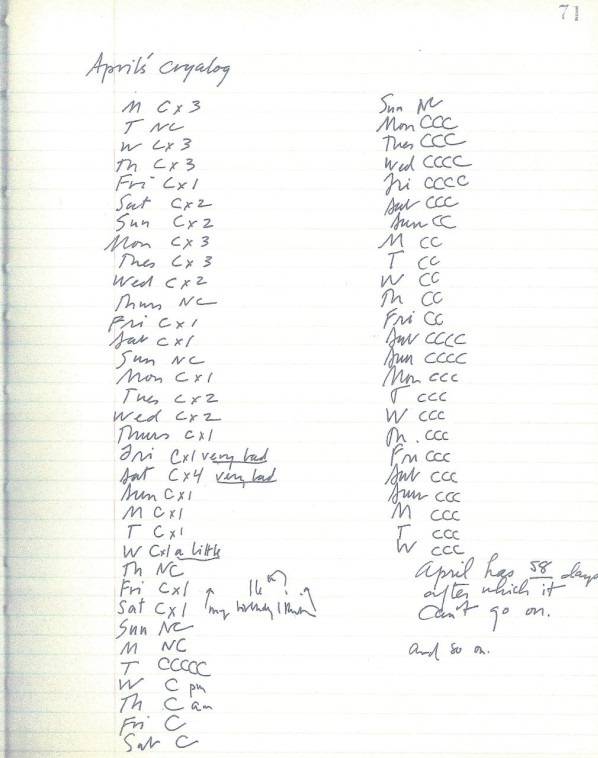 71
April's Cryalog
M C x 3
T NC
W C x 3
Th C x 3
Fri C x 1
Sat C x 2
Sun C x 2
Mon C x 3
Tues C x 3
Wed C x 2
Thurs NC
Fri C x 1
Sat C x 1
Sun NC
Mon C x 1
Tues C x 2
Wed C x 2
Thurs C x 1
Fri C x 1 very bad
Sat C x 4 very bad
Sun C x 1
M C x 1
T C x 1
W C x 1 a little
Th NC
Fri C x 1
Sat C x 1 my birthday I think
Sun NC
M NC
T CCCCC
W C pm
Th C am
Fri C
Sat C
Sun NC
Mon CCC
Tues CCC
Wed CCCC
Fri CCCC
Sat CCC
Sun CC
M CC
T CC
W CC
Th CC
Fri CC
Sat CCCC
Sun CCCC
Mon CCC
T CCC
W CCC
Th. CCC
Fri CCC
Sat CCC
Sun CCC
M CCC
T CCC
W CCC
April has 58 days
after which it
can't go on.
and so on.